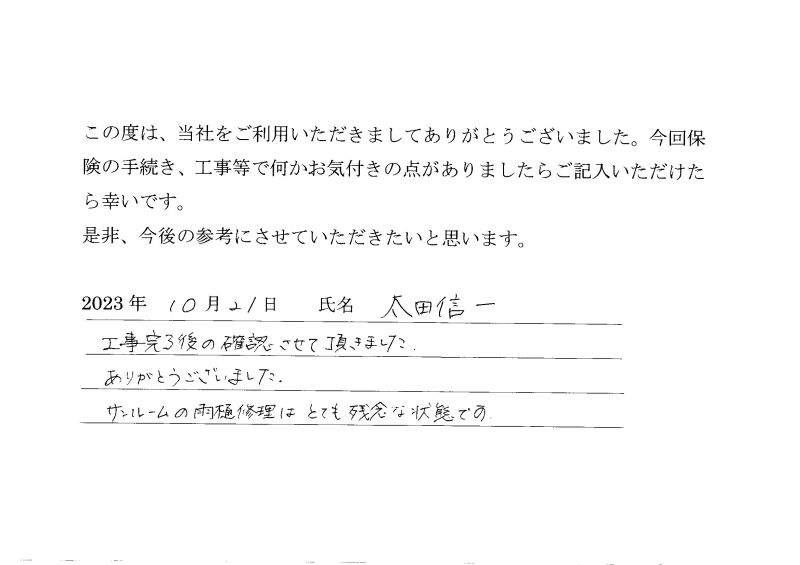 この度は、当社をご利用いただきましてありがとうございました。今回保
険の手続き、工事等で何かお気付きの点がありましたらご記入いただけた
ら幸いです。
是非、今後の参考にさせていただきたいと思います。
2023 年 10 月 21 日 氏名 太田信一
工事完了後の確認させて頂きました.
ありがとうございました.
サンルームの雨樋修理は とても 残念な状態です.